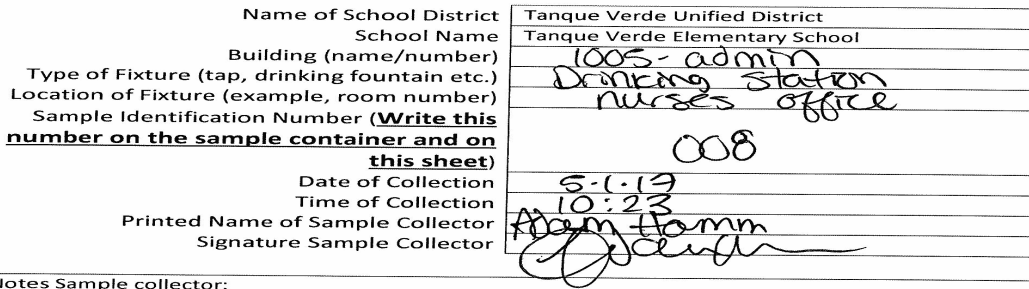 Name of School District Tanque Verde Unified District
School Name Tanque Verde Elementary School
Building (name/number) 1005- admin
Type of Fixture (tap, drinking fountain etc.) Drinking Station
Location of Fixture (example, room number) nurses office
Sample Identification Number (Write this
number on the sample container and on
this sheet) 008
Date of Collection 5.1.17
Time of Collection 10:23
Printed Name of Sample Collector Adam Hamm
Signature Sample Collector
Notes Sample collector: